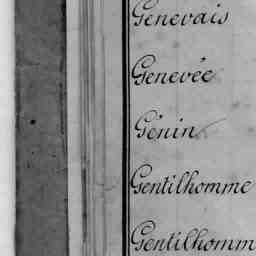 Genevais
Genevée
Génin
Gentilhomme
Gentilhomm